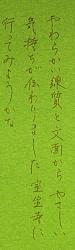 やわらかい線質と文面からやさしい
気持ちが伝わりました 室生寺に
行てみようしかな